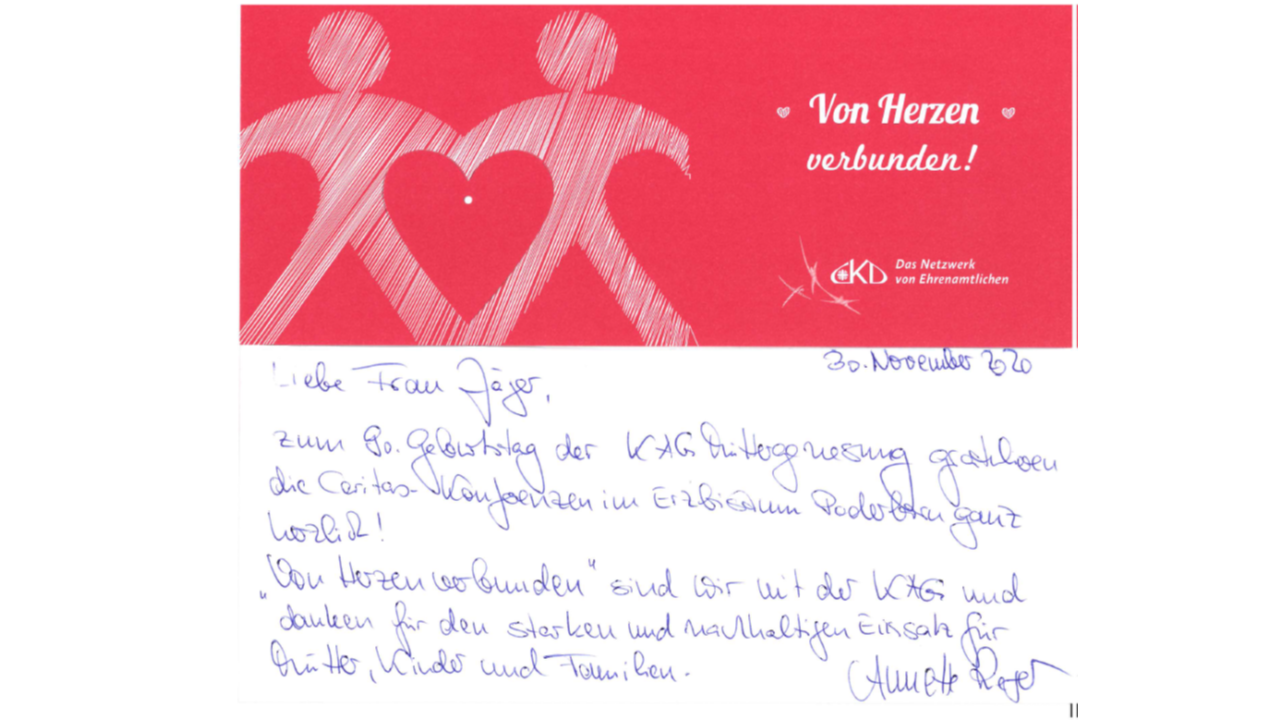 Von Herzen
verbunden!
CKD Das Netzwerk
von Ehrenamtlichen
30. November 2020
Liebe Frau Jäger,
zum 90. Geburtstag der KAG Müttergenesung gratulieren
die Caritas-Konferenzen im Erzbistum Paderborn ganz
herzlich!
„Von Herzen verbunden“ sind wir mit der KAG und
danken für den starken und nachhaltigen Einsatz für
Mütter, Kinder und Familien.
Annette